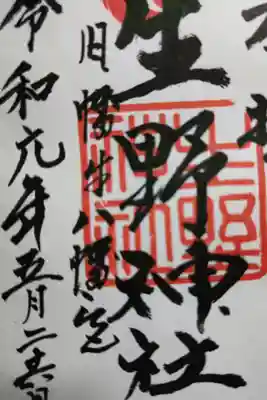 生野神社
旧幡生八幡宮
令和元年五月二十六日